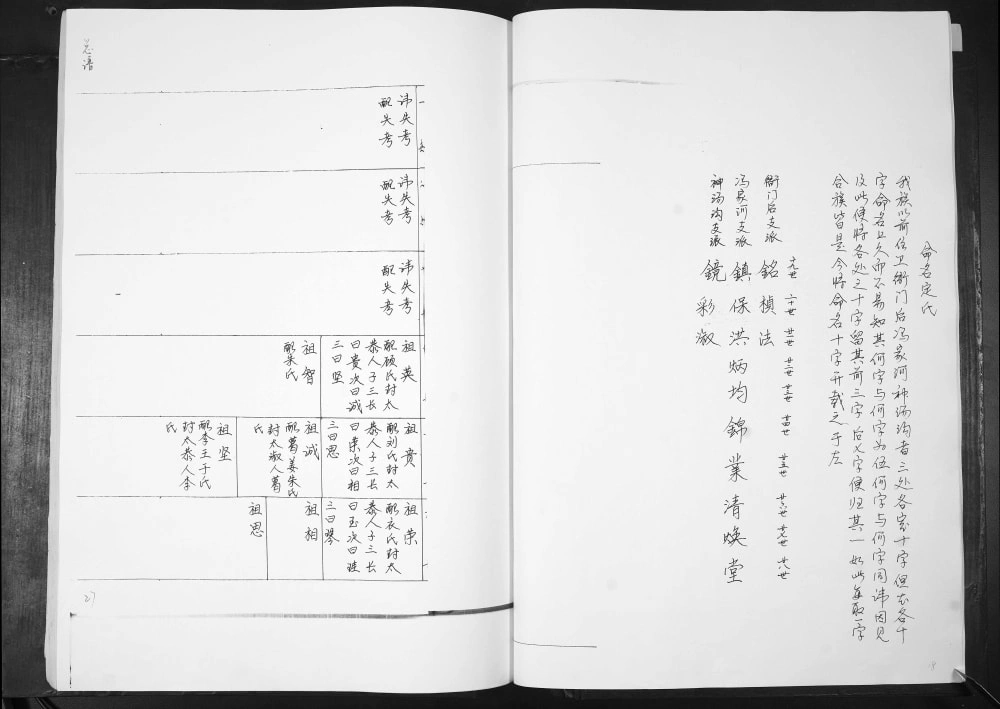 命名定氏
我族以前住卫衙门后冯家河神汤沟者三处各定十字但在各十
字命名且久而不易知其何字与何字为伍何字与何字同讳因见
及此使将各处之十字留其前三字后七字便归其一如此每取一字
合族皆是今将命名十字开载之于左
十九世 二十世 廿一世 廿二世 廿三世 廿四世 廿五世 廿六世 廿七世 廿八世
衙门后支派 銘 楨 法
冯家河支派 鎮 保 洪 炳 均 錦 業 清 焕 堂
神汤沟支派 鏡 彩 淑
19
讳失考
配失考
讳失考
配失考
讳失考
配失考
祖英
配顾氏封太
恭人子三长
曰贵次曰诚
三曰坚
祖智
配朱氏
祖贵
配刘氏封太
恭人子三长
曰荣次曰相
三曰思
祖诚
配葛姜朱氏
封太淑人葛
氏
祖坚
配李王于氏
封太恭人李
氏
祖荣
配衣氏封太
恭人子三长
曰玉次曰璉
三曰琴
祖相
祖思
27